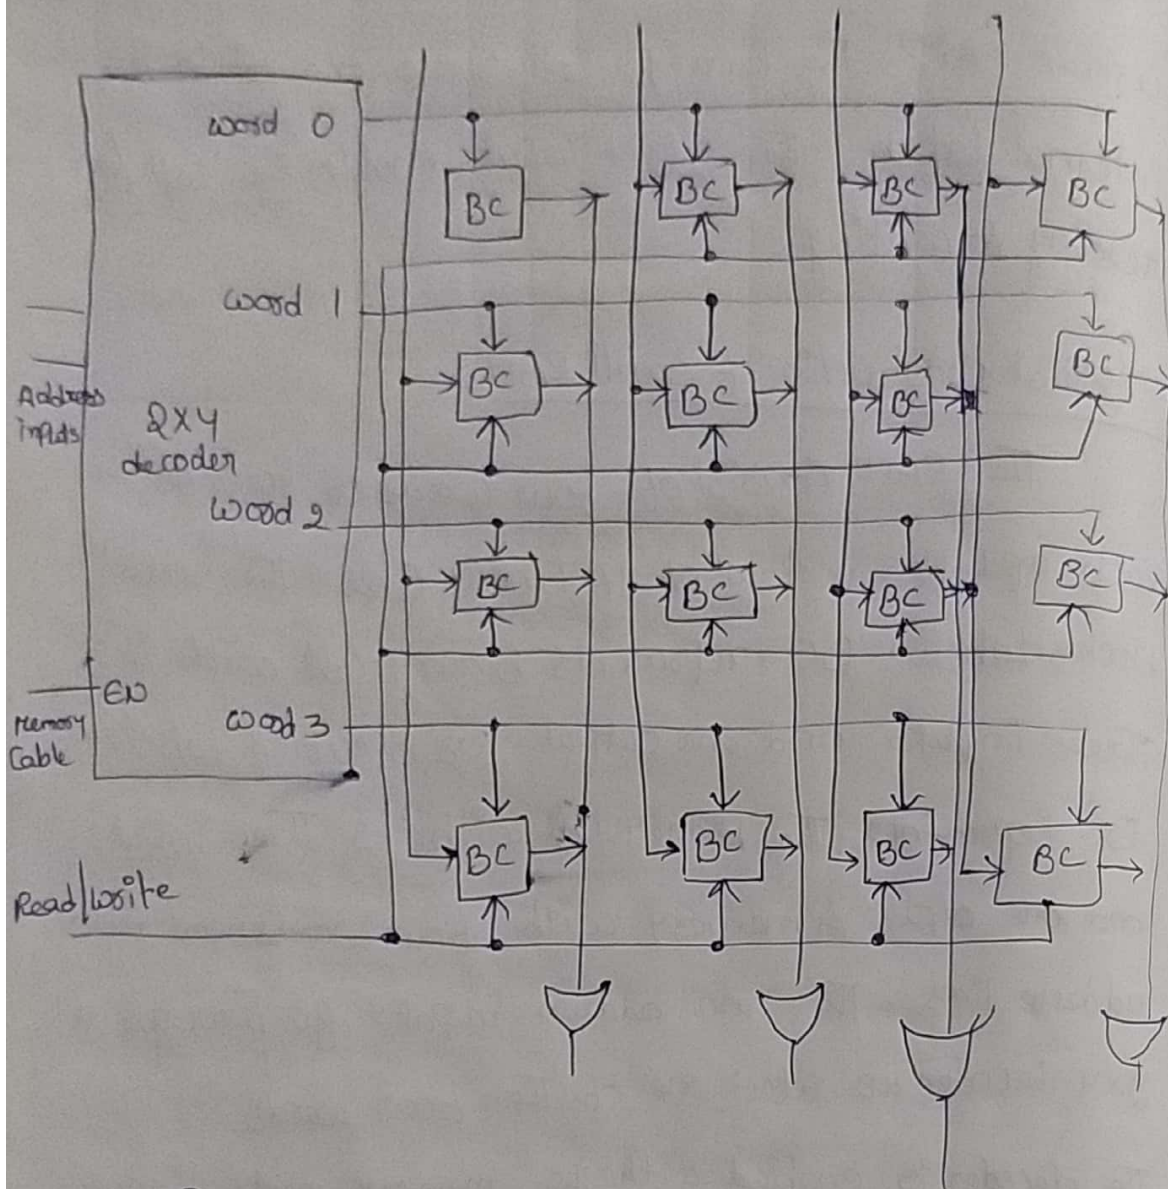 word 0
BC BC BC BC
word 1
BC BC BC BC
Address
inputs
2X4
decoder
word 2
BC BC BC BC
EN
Memory
Cable
word 3
BC BC BC BC
Read/write